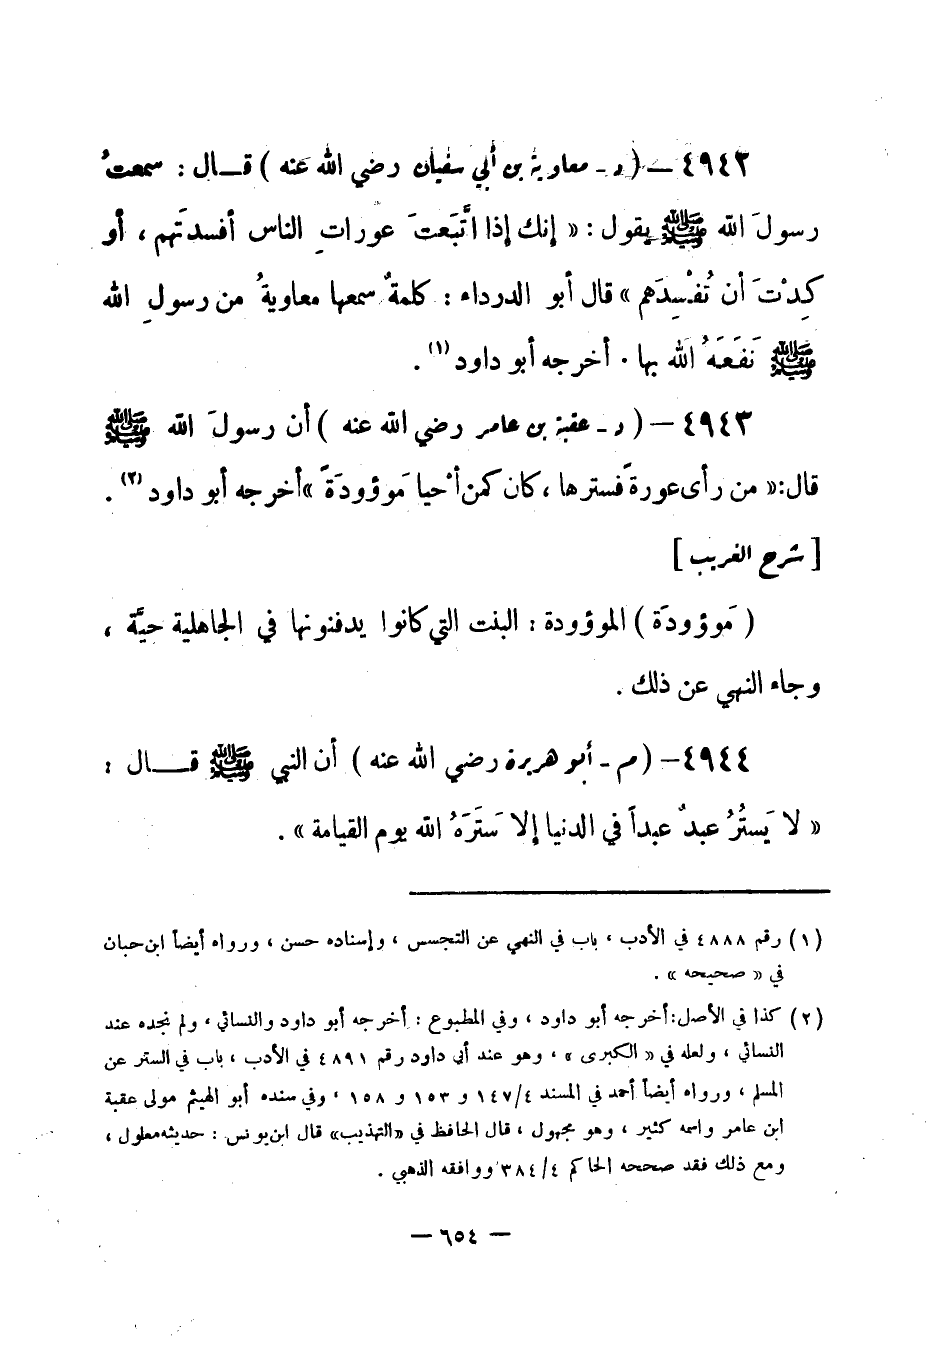 ٤٩٤٢ — ( د - معاوية بن أبي سفيان رضي الله عنه ) قــال : سمعتُ
رسولَ الله ﷺ يقول : « إنك إذا اتَّبَعتَ عوراتِ الناس أفسدتَهم ، أو
كِدْتَ أن تُفْسِدَهم » قال أبو الدرداء : كلمةٌ سمعها معاويةُ من رسولِ الله
ﷺ نَفَعَهُ الله بها . أخرجه أبو داود (١) .
٤٩٤٣ — ( د - عقبة بن عامر رضي الله عنه ) أن رسولَ الله ﷺ
قال : « من رأى عورةً فسترها ، كان كمن أحيا مَوؤودَةً » أخرجه أبو داود (٢) .
[ شرح الغريب ]
( مَوؤودَة ) الموؤودة : البنت التي كانوا يدفنونها في الجاهلية حيَّة ،
وجاء النهي عن ذلك .
٤٩٤٤ — ( م - أبو هريرة رضي الله عنه ) أن النبي ﷺ قــال :
« لا يَستُرُ عبدٌ عبداً في الدنيا إلا سَتَرَهُ الله يوم القيامة » .
(١) رقم ٤٨٨٨ في الأدب ، باب في النهي عن التجسس ، وإسناده حسن ، ورواه أيضاً ابن حبان
في « صحيحه » .
(٢) كذا في الأصل : أخرجه أبو داود ، وفي المطبوع : أخرجه أبو داود والنسائي ، ولم نجده عند
النسائي ، ولعله في « الكبرى » ، وهو عند أبي داود رقم ٤٨٩١ في الأدب ، باب في الستر عن
المسلم ، ورواه أيضاً أحمد في المسند ١٤٧/٤ و ١٥٣ و ١٥٨ ، وفي سنده أبو الهيثم مولى عقبة
ابن عامر واسمه كثير ، وهو مجهول ، قال الحافظ في « التهذيب » قال ابن يونس : حديثه معلول ،
ومع ذلك فقد صححه الحاكم ٣٨٤/٤ ووافقه الذهبي .
— ٦٥٤ —